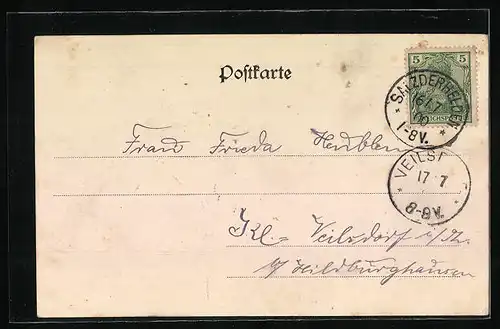 Postkarte
5 5
REICHSPOST
SALZDERHELDEN
16/7
00
1-8V.
Frau Frieda
VEILSD
17 7
8-9V.
Kl. Veilsdorf i/Th.
b/ Hildburghausen